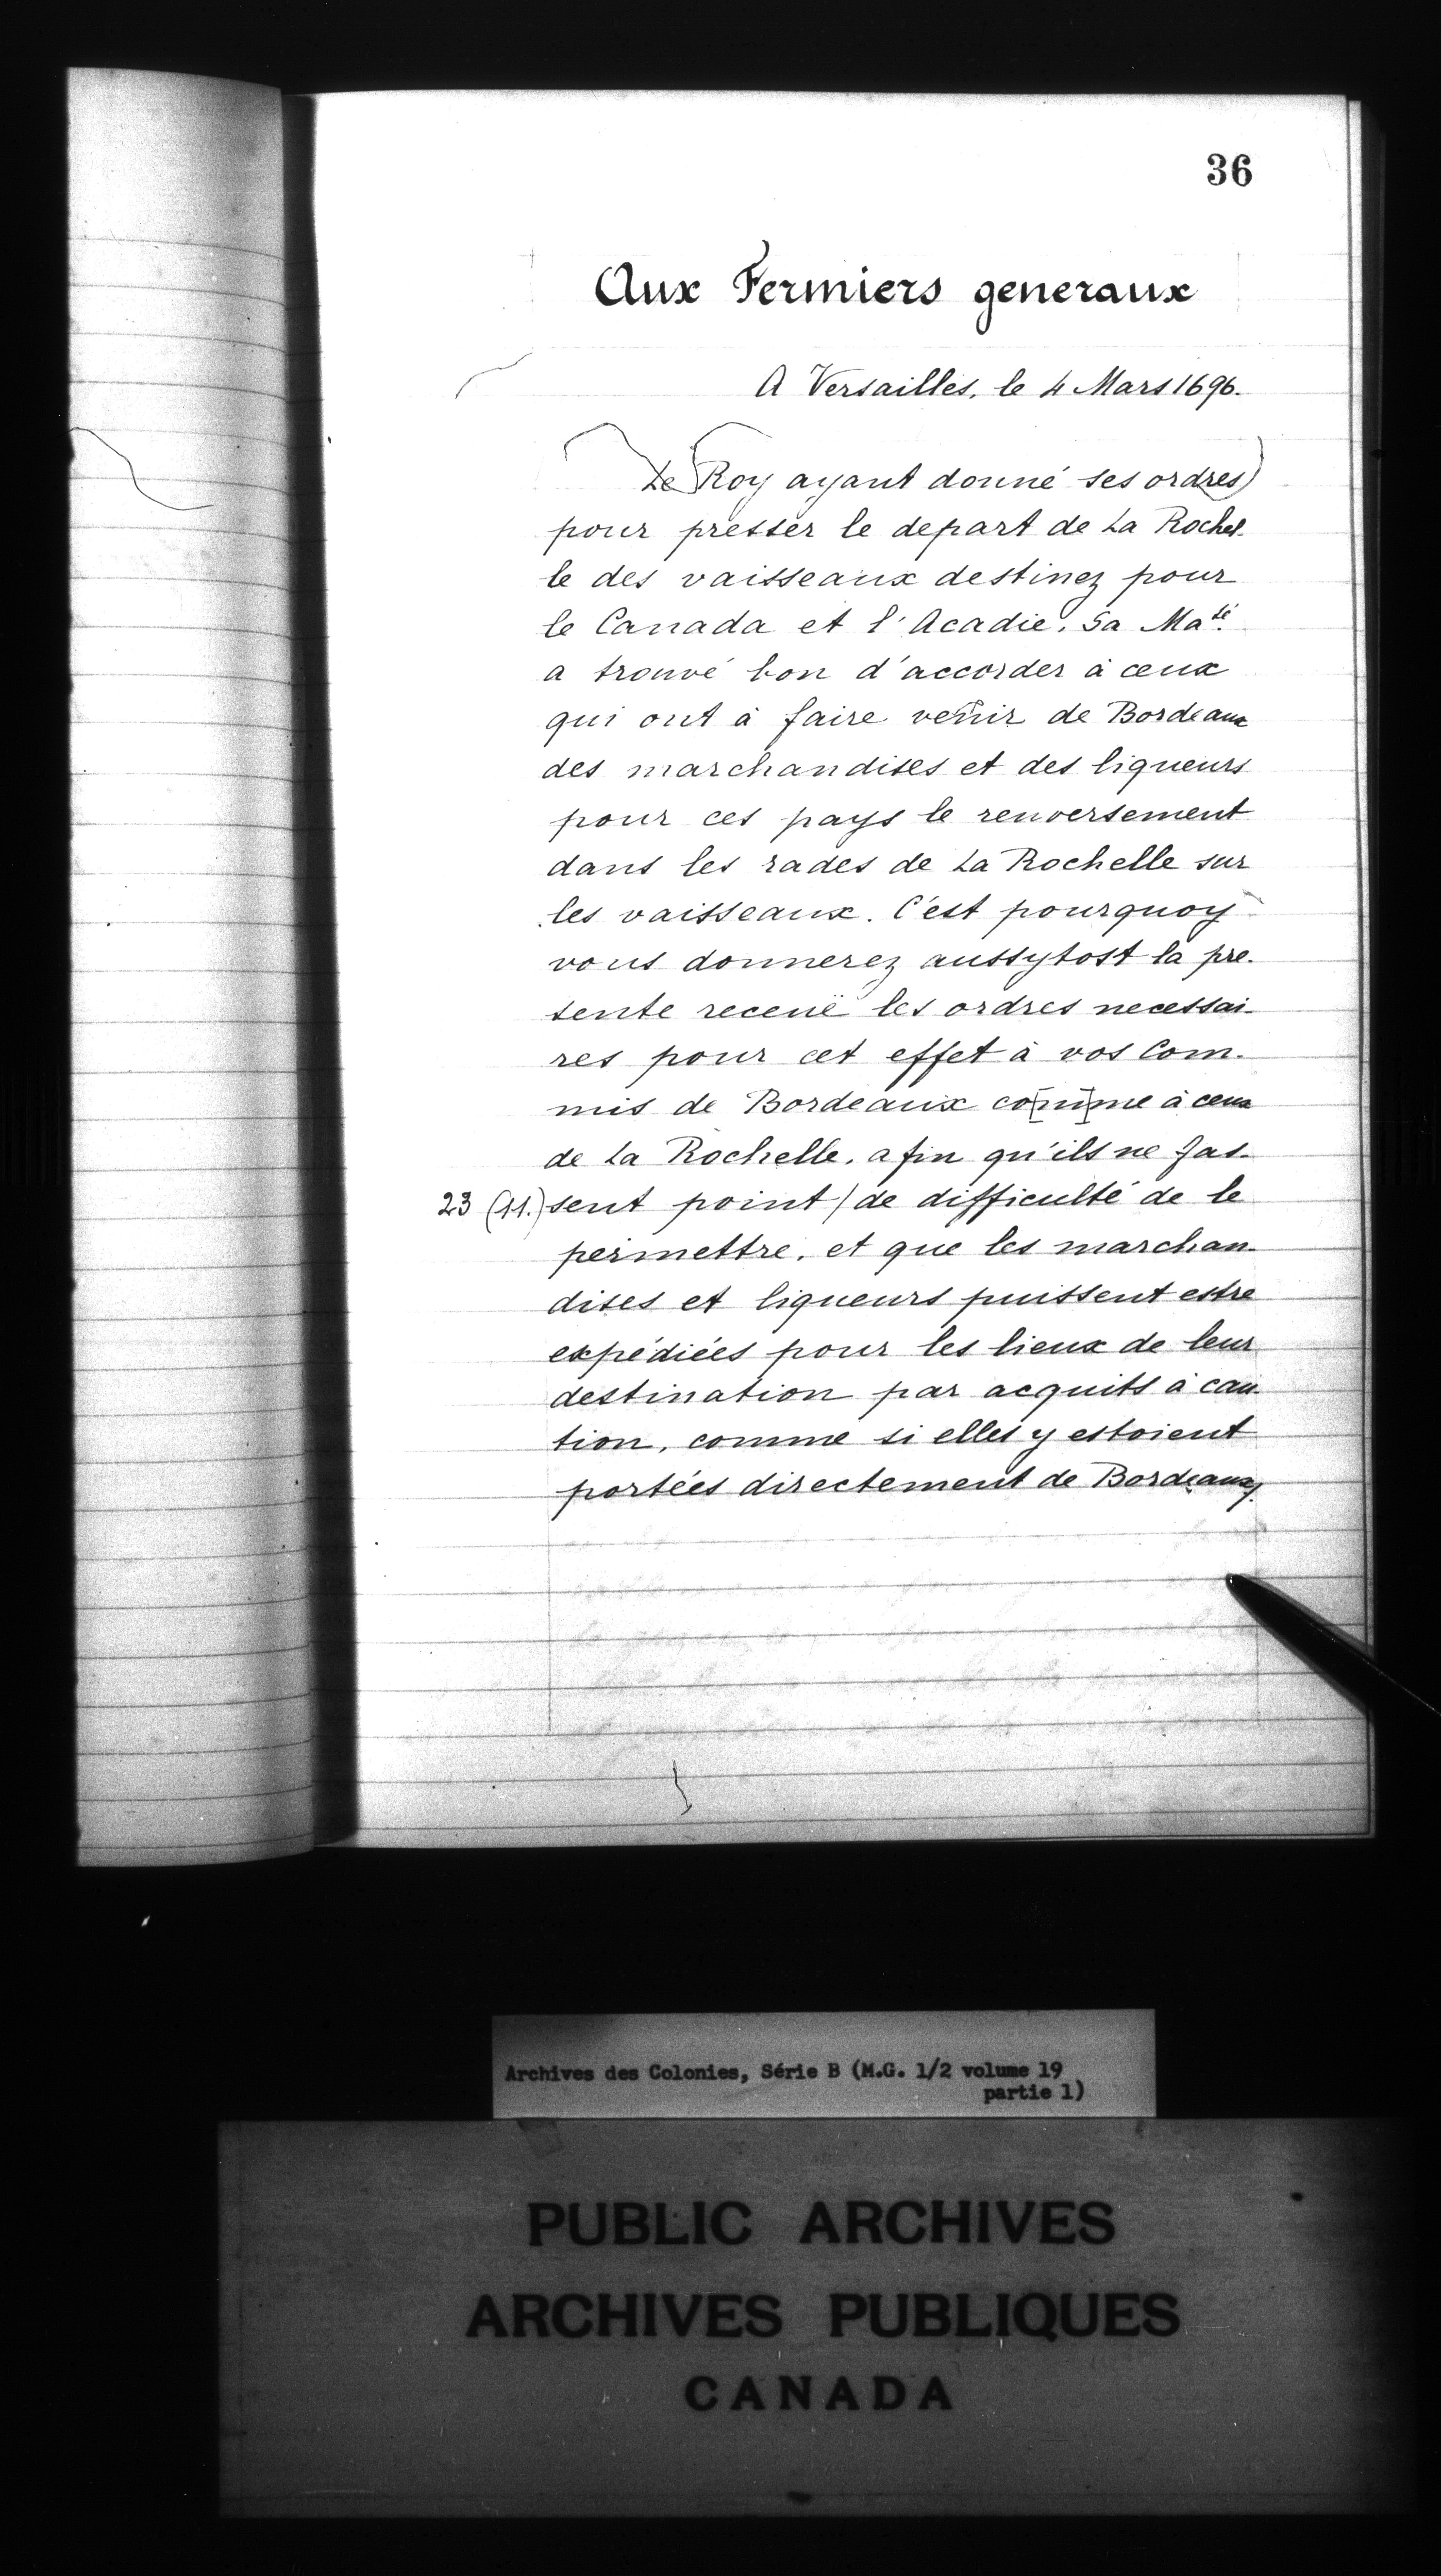 36
Aux Fermiers generaux
A Versailles, le 4 Mars 1696.
Le Roy ayant donné ses ordres)
pour presser le depart de La Rochel-
le des vaisseaux destinez pour
le Canada et l'Acadie, Sa Maté.
a trouvé bon d'accorder à ceux
qui ont à faire venir de Bordeaux
des marchandises et des liqueurs
pour ces pays le renversement
dans les rades de La Rochelle sur
les vaisseaux. C'est pourquoy
vous donnerez aussytost la pre-
sente receuë les ordres necessai-
res pour cet effet à vos Com-
mis de Bordeaux co[m]me à ceux
de La Rochelle, afin qu'ils ne fas-
23 (11.) sent point / de difficulté de le
permettre, et que les marchan-
dises et liqueurs puissent estre
expédiées pour les lieux de leur
destination par acquits à cau-
tion, comme si elles y estoient
portées directement de Bordeaux.
Archives des Colonies, Série B (M.G. 1/2 volume 19
partie 1)
PUBLIC ARCHIVES
ARCHIVES PUBLIQUES
CANADA